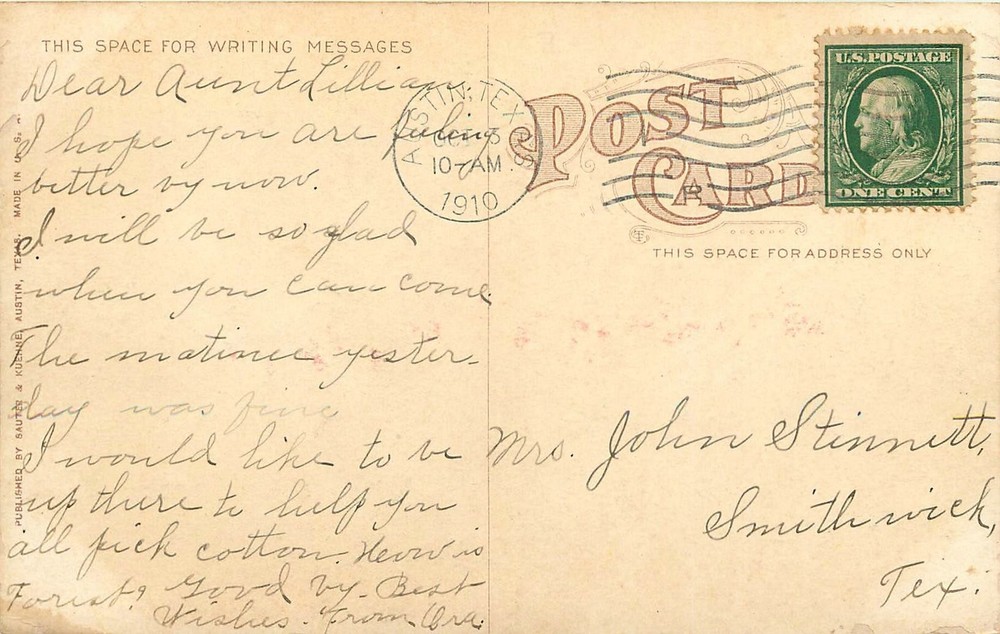 THIS SPACE FOR WRITING MESSAGES
Dear Aunt Lillian,
I hope you are feeling
better by now.
I will be so glad
when you can come.
The matinee yester-
day was fine
I would like to be
up there to help you
all pick cotton. How is
Forest? Good by. Best
Wishes. From Ora.
PUBLISHED BY SAUTER & KUEHNE, AUSTIN, TEXAS. MADE IN U. S. A.
AUSTIN, TEXAS
OCT
10-AM
1910
POST
CARD
U.S. POSTAGE
ONE CENT
THIS SPACE FOR ADDRESS ONLY
Mrs. John Stinnett,
Smithwick,
Tex.